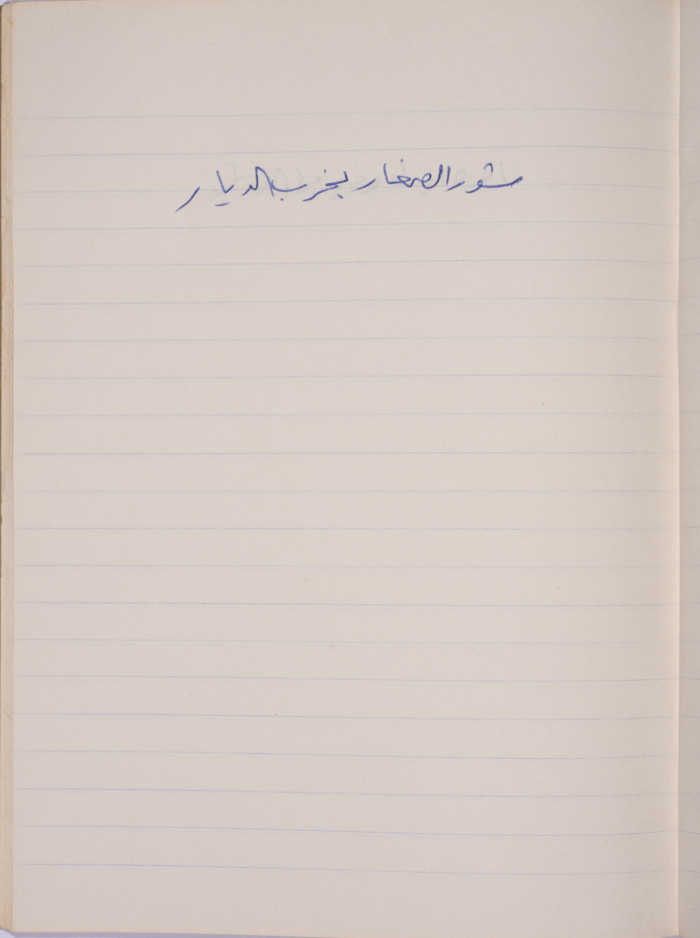 شور الصغار بخرب الديار